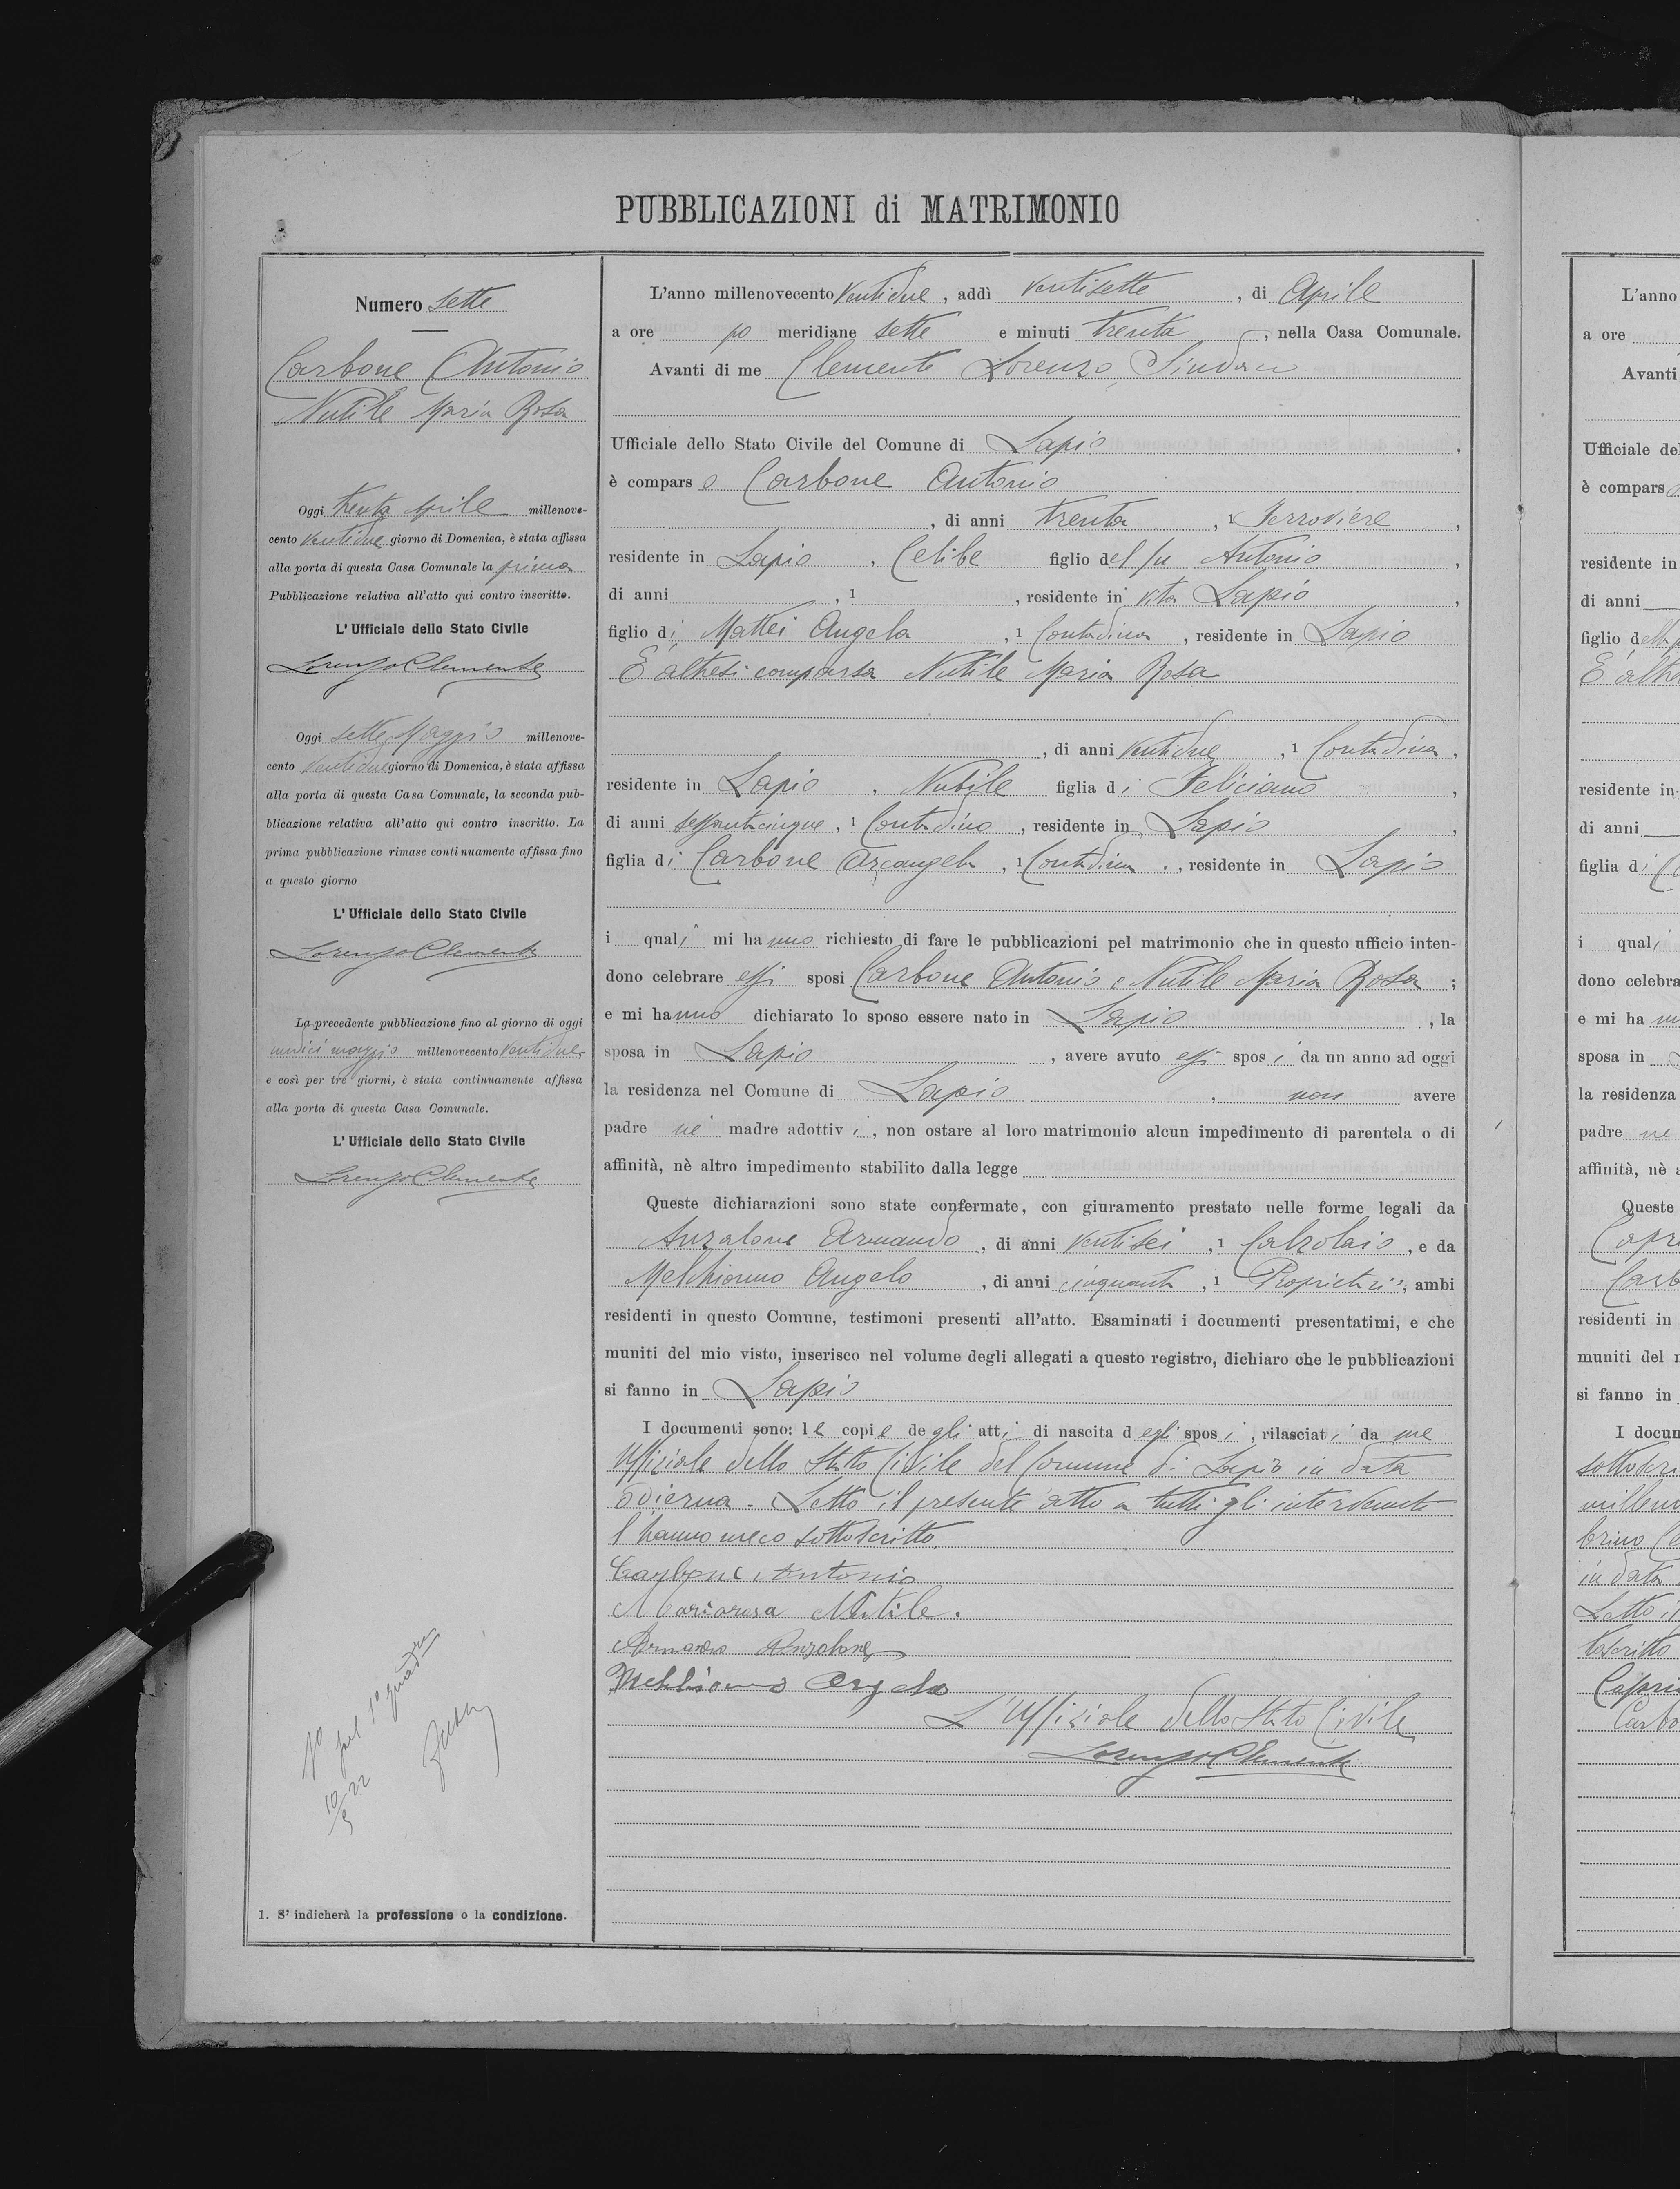 PUBBLICAZIONI di MATRIMONIO
Numero sette
Carbone Antonio
Nutile Maria Rosa
Oggi trenta Aprile millenove-
cento Ventidue giorno di Domenica, è stata affissa
alla porta di questa Casa Comunale la prima
Pubblicazione relativa all'atto qui contro inscritto.
L'Ufficiale dello Stato Civile
Lorenzo Clemente
Oggi sette Maggio millenove-
cento Ventidue giorno di Domenica, è stata affissa
alla porta di questa Casa Comunale, la seconda pub-
blicazione relativa all'atto qui contro inscritto. La
prima pubblicazione rimase continuamente affissa fino
a questo giorno
L'Ufficiale dello Stato Civile
Lorenzo Clemente
La precedente pubblicazione fino al giorno di oggi
undici maggio millenovecento Ventidue
e così per tre giorni, è stata continuamente affissa
alla porta di questa Casa Comunale.
L'Ufficiale dello Stato Civile
Lorenzo Clemente
10/5 22
1. S' indicherà la professione o la condizione.
L'anno millenovecento Ventidue, addì Ventisette, di Aprile
a ore po meridiane sette e minuti trenta, nella Casa Comunale.
Avanti di me Clemente Lorenzo, Sindaco
Ufficiale dello Stato Civile del Comune di Lapio,
è comparso Carbone Antonio
, di anni trenta, 1 Ferroviere,
residente in Lapio, Celibe figlio del fu Antonio,
di anni , 1 , residente in vita Lapio,
figlio di Mattei Angela, 1 Contadina, residente in Lapio
E' altresì comparsa Nutile Maria Rosa
, di anni Ventidue, 1 Contadina,
residente in Lapio, Nubile figlia di Feliciano,
di anni sessantacinque, 1 Contadino, residente in Lapio,
figlia di Carbone Arcangela, 1 Contadina, residente in Lapio
i quali mi hanno richiesto di fare le pubblicazioni pel matrimonio che in questo ufficio inten-
dono celebrare essi sposi Carbone Antonio e Nutile Maria Rosa;
e mi hanno dichiarato lo sposo essere nato in Lapio, la
sposa in Lapio, avere avuto essi sposi da un anno ad oggi
la residenza nel Comune di Lapio, non avere
padre nè madre adottivi, non ostare al loro matrimonio alcun impedimento di parentela o di
affinità, nè altro impedimento stabilito dalla legge
Queste dichiarazioni sono state confermate, con giuramento prestato nelle forme legali da
Anzalone Armando, di anni Ventisei, 1 Calzolaio, e da
Melchionno Angelo, di anni cinquanta, 1 Proprietario, ambi
residenti in questo Comune, testimoni presenti all'atto. Esaminati i documenti presentatimi, e che
muniti del mio visto, inserisco nel volume degli allegati a questo registro, dichiaro che le pubblicazioni
si fanno in Lapio
I documenti sono: le copie degli atti di nascita degli sposi, rilasciati da me
Uffiziale dello Stato Civile del Comune di Lapio in data
odierna. Letto il presente atto a tutti gli intervenuti
l'hanno meco sottoscritto.
Carbone Antonio
Mariarosa Nutile.
Armando Anzalone
Melchionno Angelo
L'Uffiziale dello Stato Civile
Lorenzo Clemente
L'anno
a ore
Avanti
Ufficiale del
è compars
residente in
di anni
figlio
residente in
di anni
figlia di
i quali
dono celebra
e mi ha
sposa in
la residenza
padre ne
affinità, nè a
Queste
residenti in
muniti del m
si fanno in
I docum